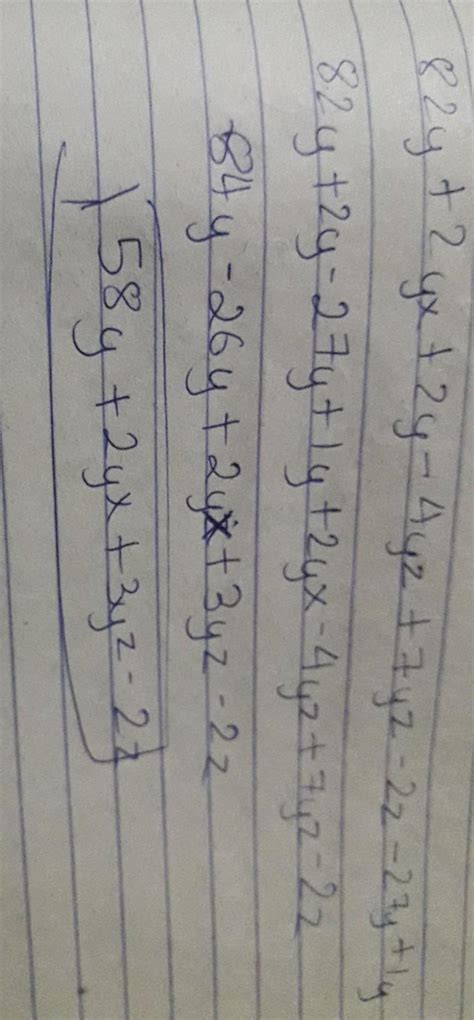 82y + 2yx + 2y - 4yz + 7yz - 2z - 27y + 1y
82y + 2y - 27y + 1y + 2yx - 4yz + 7yz - 2z
84y - 26y + 2yx + 3yz - 2z
58y + 2yx + 3yz - 2z